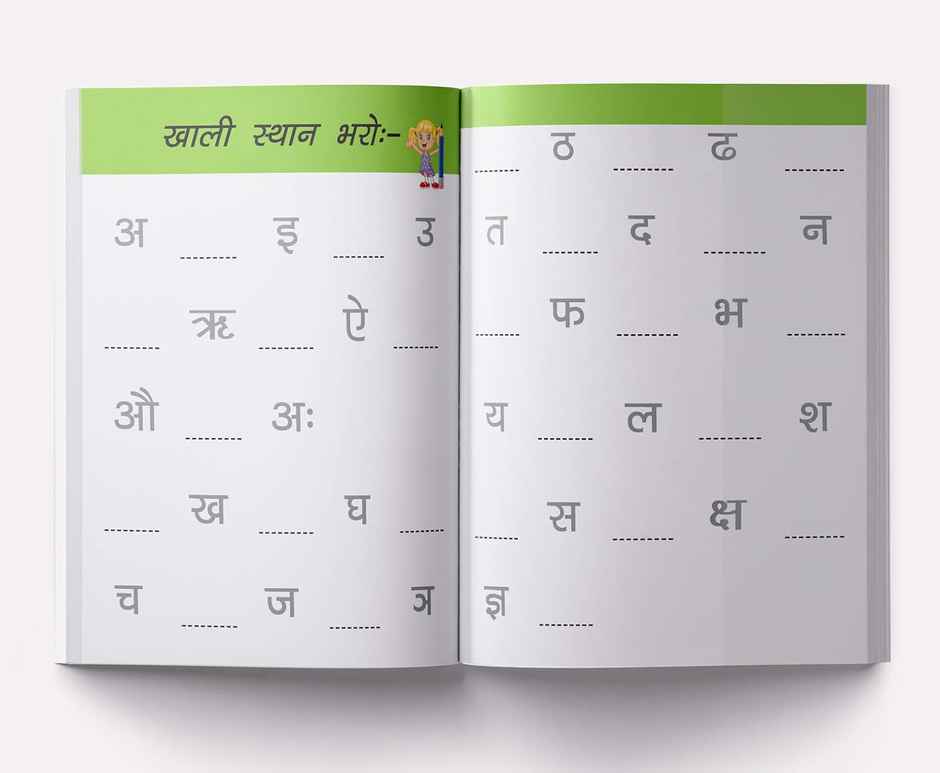 खाली स्थान भरोः-
अ ------ इ ------ उ
------ ऋ ------ ऐ ------
औ ------ अः
------ ख ------ घ ------
च ------ ज ------ ञ
------ ठ ------ ढ ------
त ------ द ------ न
------ फ ------ भ ------
य ------ ल ------ श
------ स ------ क्ष ------
ज्ञ ------